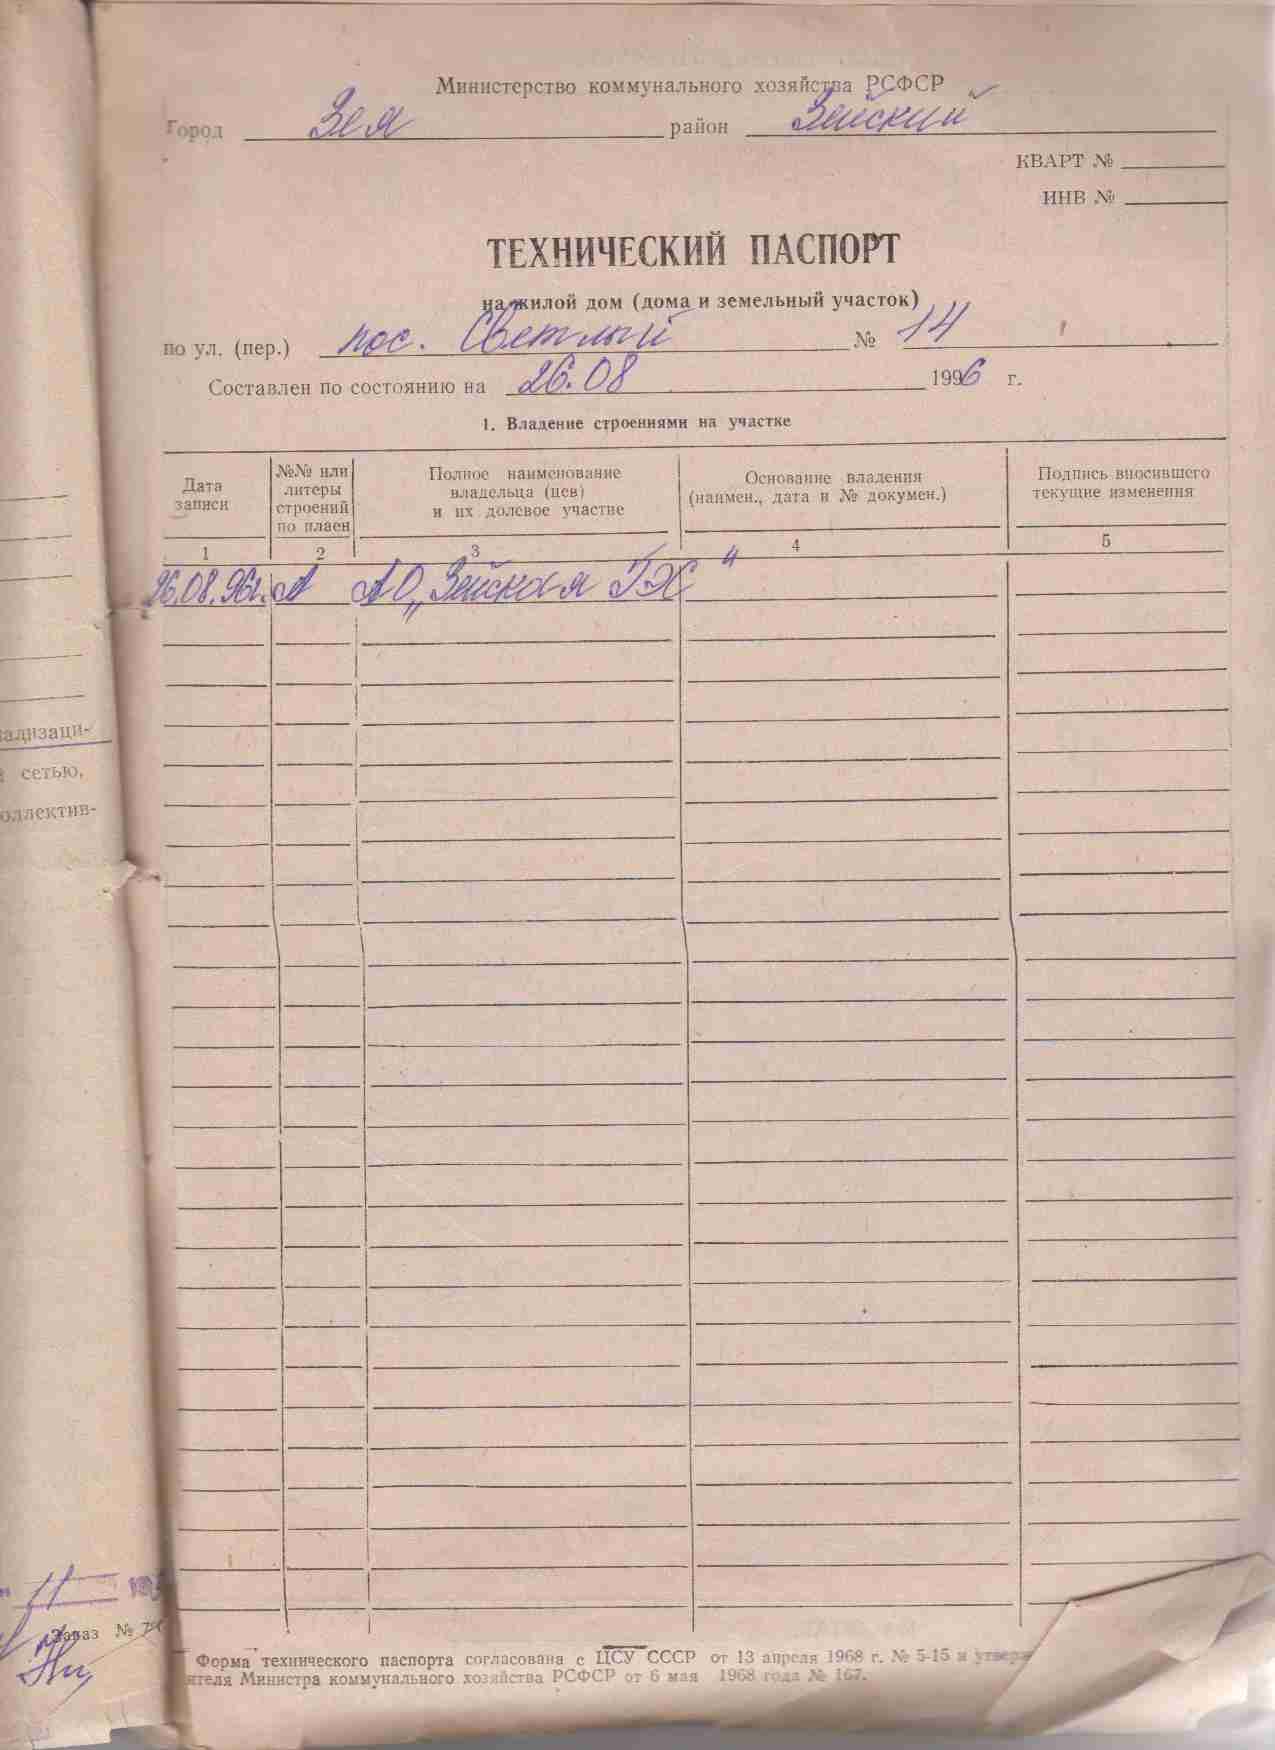 Министерство коммунального хозяйства РСФСР
Город Зея район Зейский
КВАРТ №
ИНВ №
ТЕХНИЧЕСКИЙ ПАСПОРТ
на жилой дом (дома и земельный участок)
по ул. (пер.) пос. Светлый № 14
Составлен по состоянию на 26.08 1996 г.
1. Владение строениями на участке
Дата записи
№№ или литеры строений по плаен
Полное наименование владельца (цев) и их долевое участие
Основание владения (наимен., дата и № докумен.)
Подпись вносившего текущие изменения
1 2 3 4 5
26.08.96г. А АО „Зейская ГЭС"
ализаци-
сетью,
оллектив-
11
Заказ №
Форма технического паспорта согласована с ЦСУ СССР от 13 апреля 1968 г. № 5-15 и утвер
ителя Министра коммунального хозяйства РСФСР от 6 мая 1968 года № 167.